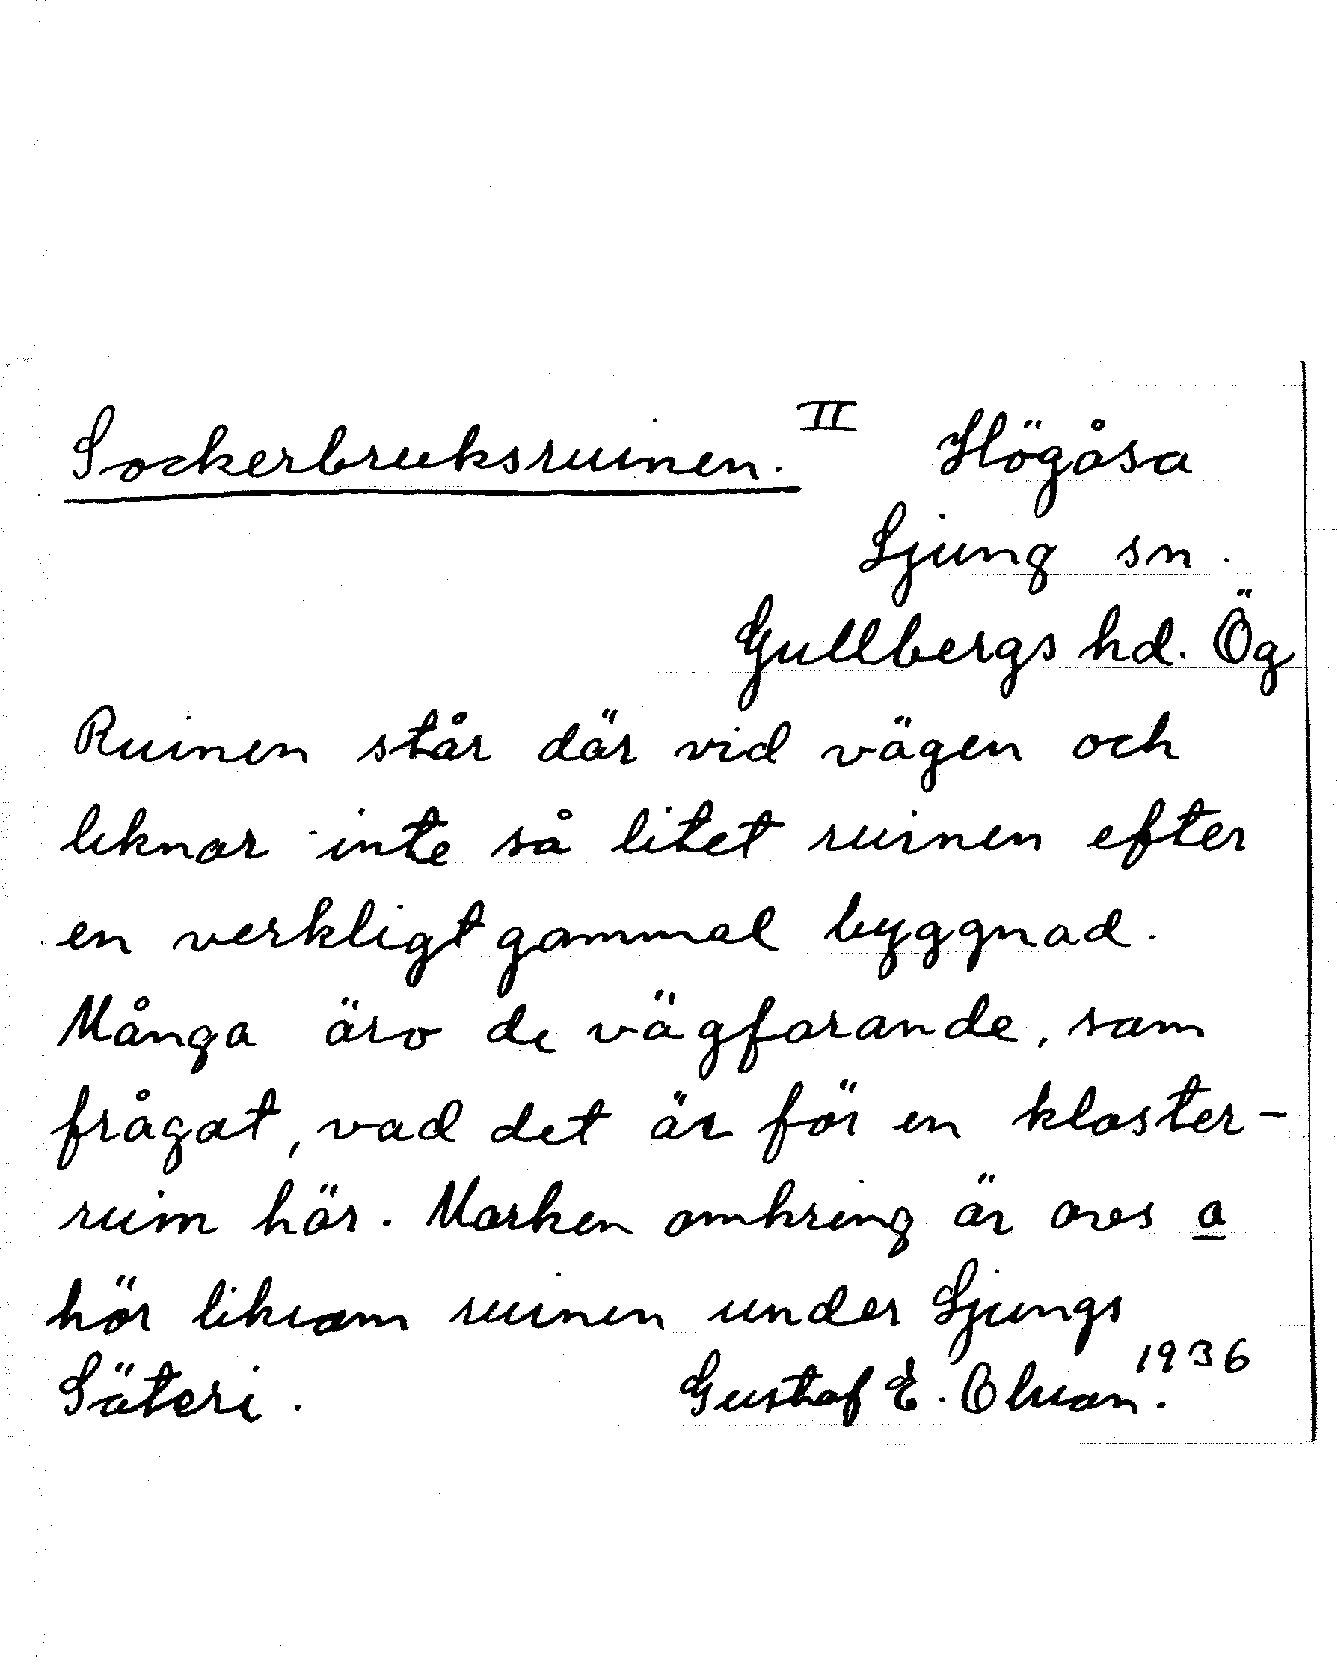 Sockerbruksruinen. II Högåsa
Ljung sn.
Gullbergs hd. Ög
Ruinen står där vid vägen och
liknar inte så litet ruinen efter
en verkligt gammal byggnad.
Många äro de vägfarande, som
frågat, vad det är för en kloster-
ruin här. Marken omkring är oxes a
hör liksom ruinen under Ljungs
Säteri. Gustaf E. Olsson. 1936